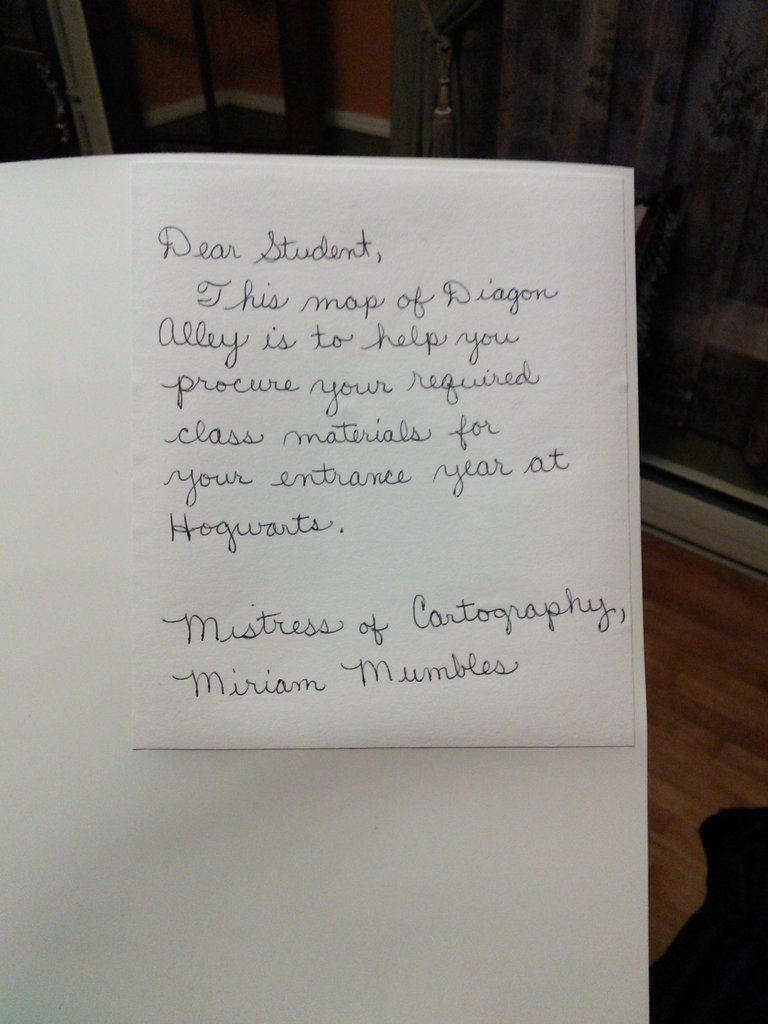 Dear Student,
This map of Diagon
Alley is to help you
procure your required
class materials for
your entrance year at
Hogwarts.
Mistress of Cartography,
Miriam Mumbles